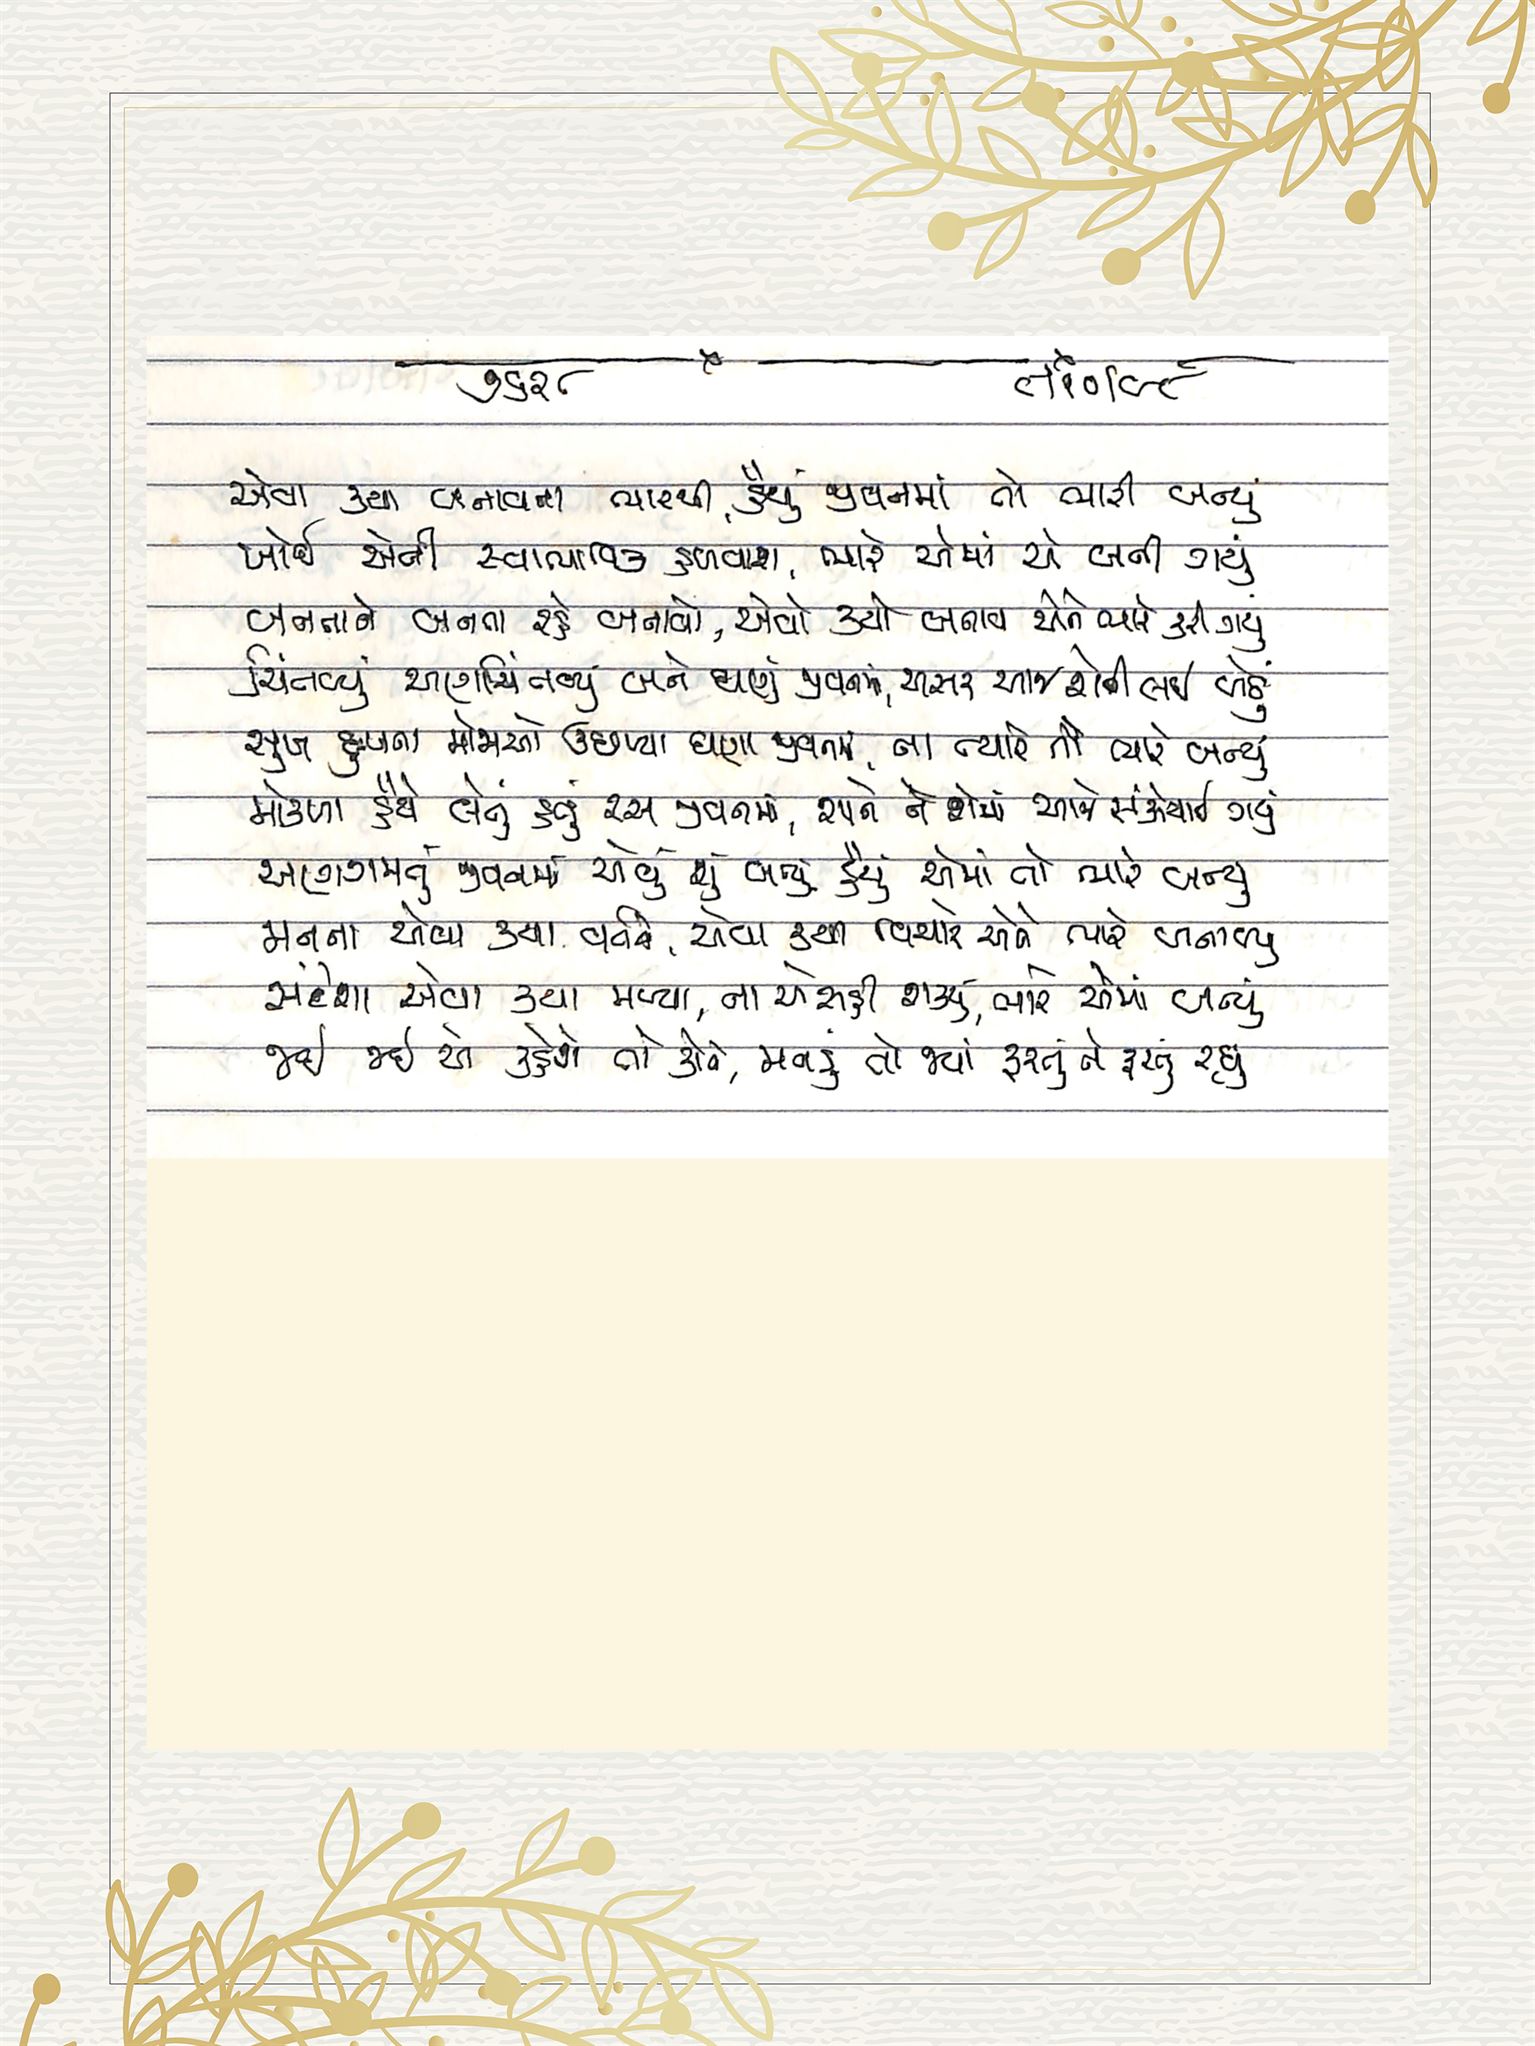 ૭૬૨૮
એવા કયા બનાવના ભારથી, હૈયું જીવનમાં તો ભારી બન્યું
ખોઈ એની સ્વાભાવિક હળવાશ, ભારે એમાં એ બની ગયું
બનનાને બનતા રહે બનાવો, એવો કયો બનાવ એને ભારે કરી ગયું
ચિંતવ્યું અણચિંતવ્યું બને ઘણું જીવનમાં, અસર આજ શેની લઈ બેઠું
સુખ દુઃખના મોજાઓ ઉછળ્યા ઘણા જીવનમાં, ના ત્યારે તો ભારે બન્યું
મોકળા હૈયે લેતું હતું રસ જીવનમાં, અને શેમાં આજે સંકોચાઈ ગયું
અણગમતું જીવનમાં એવું શું બન્યું હૈયું એમાં તો ભારે બન્યુ
મનના એવા કયા વર્તને, એવા કયા વિચારે એને ભારે બનાવ્યુ
સંદેશા એવા કયા મળ્યા, ના એ સહી શક્યું, ભારે એમાં બન્યું
જઈ જઈ એ કહેશે તો કોને, મનડું તો જ્યાં ફરતું ને ફરતું રહ્યું